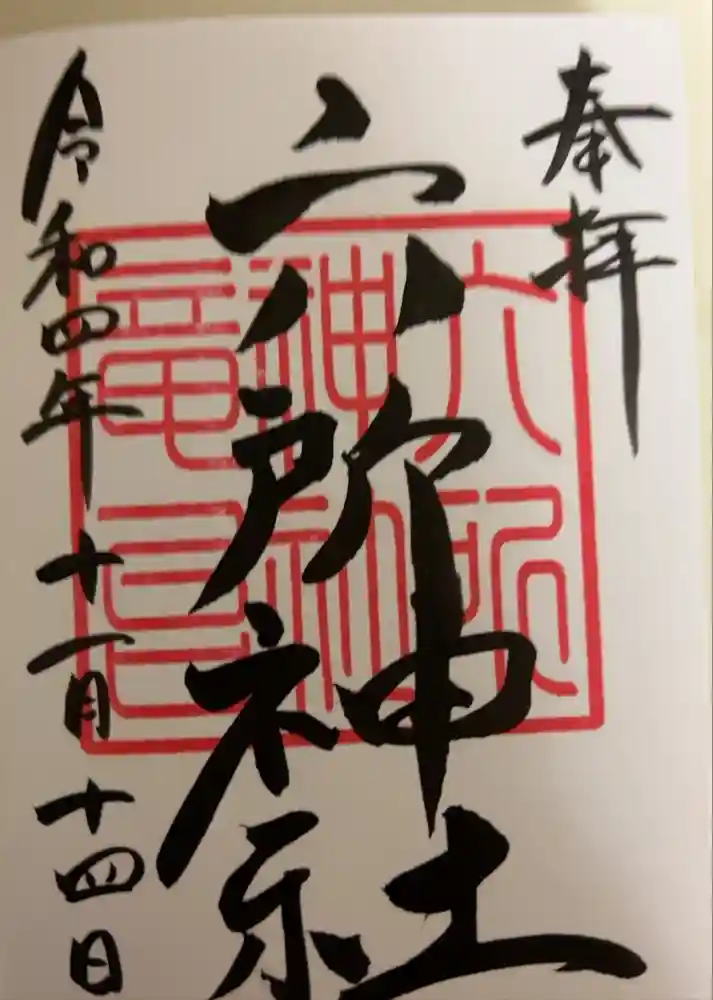 奉拝
六所神社
令和四年十一月十四日
六所
神社
竜宮